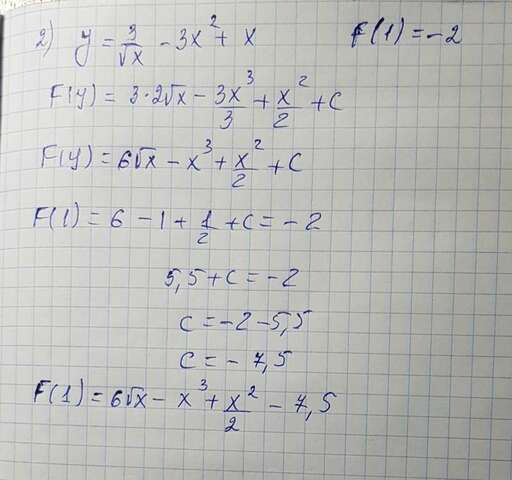 2) y = 3/√x - 3x² + x F(1) = -2
F(y) = 3·2√x - 3x³/3 + x²/2 + C
F(y) = 6√x - x³ + x²/2 + C
F(1) = 6 - 1 + 1/2 + C = -2
5,5 + C = -2
C = -2 - 5,5
C = - 7,5
F(1) = 6√x - x³ + x²/2 - 7,5